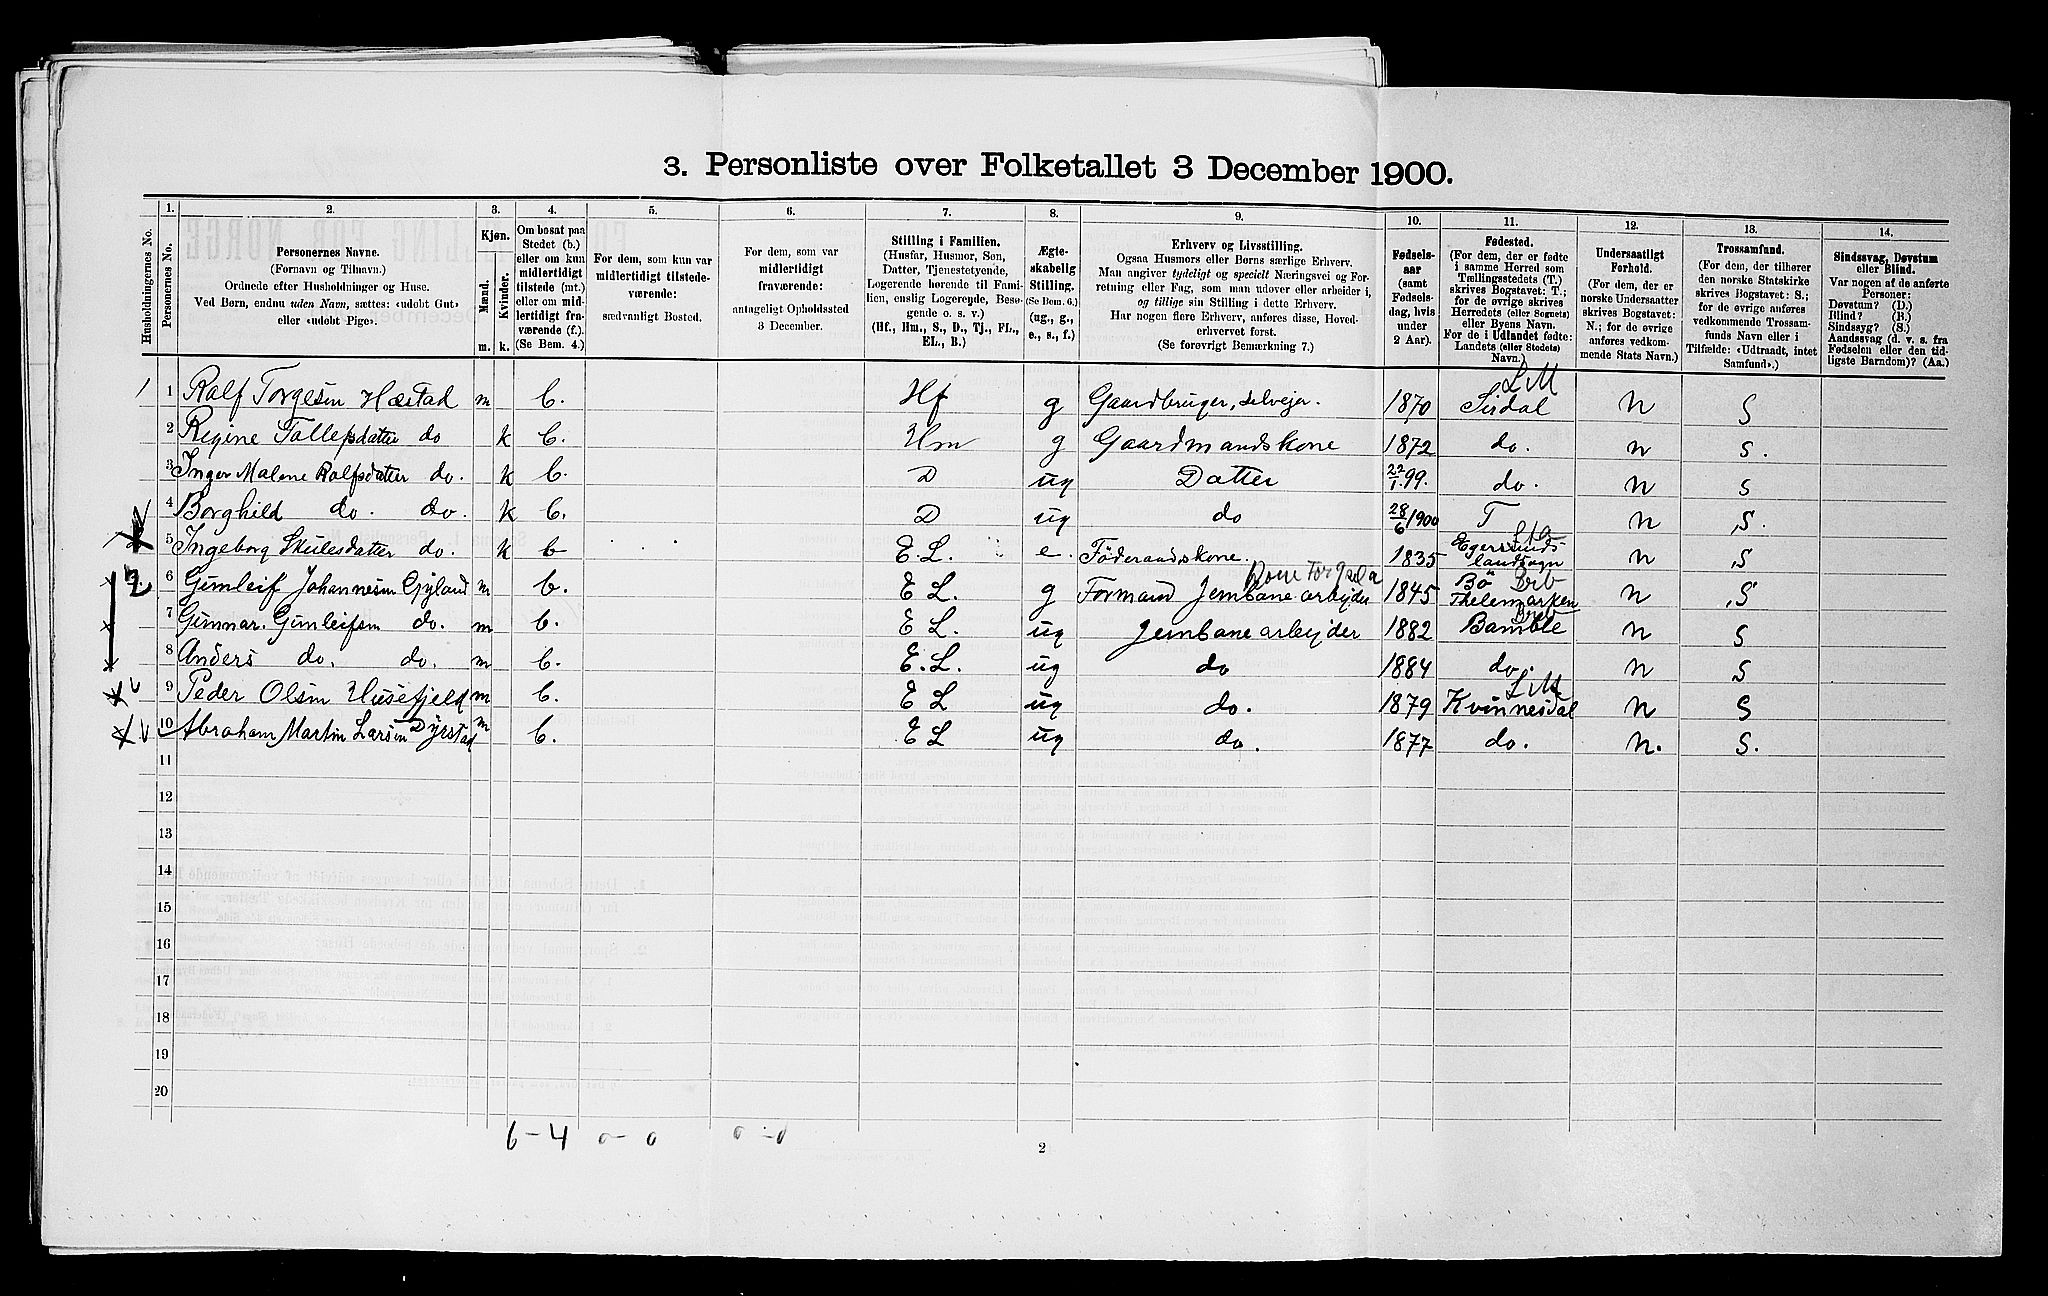 3. Personliste over Folketallet 3 December 1900.
Husholdningernes No.
1. Personernes No.
2. Personernes Navne.
(Fornavn og Tilnavn.)
Ordnede efter Husholdninger og Huse.
Ved Børn, endnu uden Navn, sættes: «udobt Gut»
eller «udobt Pige».
3. Kjøn.
Mænd. m.
Kvinder. k.
4. Om bosat paa
Stedet (b.)
eller om kun
midlertidigt
tilstede (mt.)
eller om mid-
lertidigt fra-
værende (f.)
(Se Bem. 4.)
5. For dem, som kun var
midlertidigt tilstede-
værende:
sædvanligt Bosted.
6. For dem, som var
midlertidigt
fraværende:
antageligt Opholdssted
3 December.
7. Stilling i Familien.
(Husfar, Husmor, Søn,
Datter, Tjenestetyende,
Logerende hørende til Fami-
lien, enslig Logerende, Besø-
gende o. s. v.)
(Hf., Hm., S., D., Tj., FL.,
EL., B.)
8. Ægte-
skabelig
Stilling.
(Se Bem. 6.)
(ug., g.,
e., s., f.)
9. Erhverv og Livsstilling.
Ogsaa Husmors eller Børns særlige Erhverv.
Man angiver tydeligt og specielt Næringsvei og For-
retning eller Fag, som man udover eller arbeider i,
og tillige sin Stilling i dette Erhverv.
Har nogen flere Erhverv, anføres disse, Hoved-
erhvervet først.
(Se forøvrigt Bemærkning 7.)
10. Fødsels-
aar
(samt
Fødsels-
dag, hvis
under
2 Aar).
11. Fødested.
(For dem, der er fødte
i samme Herred som
Tællingsstedets (T.)
skrives Bogstavet: T.;
for de øvrige skrives
Herredets (eller Sognets)
eller Byens Navn.
For de i Udlandet fødte:
Landets (eller Stedets)
Navn.)
12. Undersaatligt
Forhold.
(For dem, der er
norske Undersaatter
skrives Bogstavet:
N.; for de øvrige
anføres vedkom-
mende Stats Navn.)
13. Trossamfund.
(For dem, der tilhører
den norske Statskirke
skrives Bogstavet: S.;
for de øvrige anføres
vedkommende Trossam-
funds Navn eller i
Tilfælde: «Udtraadt, intet
Samfund».)
14. Sindssvag, Døvstum
eller Blind.
Var nogen af de anførte
Personer:
Døvstum? (D.)
Blind? (B.)
Sindssyg? (S.)
Aandssvag (d. v. s. fra
Fødselen eller den tid-
ligste Barndom)? (Aa.)
1 1 Ralf Torgesen Hæstad m b. Hf g Gaardbruger, selveier. 1870 Sirdal L M N S
2 Regine Tallefsdatter do k b. Hm g Gaardmandskone 1872 do. N S.
3 Inger Malene Ralfsdatter do. k b. D ug Datter 22/1.99. do. N S
4 Borghild do. do. k b. D ug do 28/6 1900 T N S.
5 Ingeborg Skulesdatter do. k b E. L. e. Föderaadskone. 1835 Egersunds landsogn N S
2. 6 Gunleif Johannesen Gyland m b. E L. g Formand Jernbanearbejder 1845 Bö Thelemarken N S
7 Gunnar. Gunleifsen do. m b. E L. ug Jernbanearbejder 1882 Bamble N S
8 Anders do. do. m b. E. L. ug do 1884 do. N S
9 Peder Olsen Husefjeld m b. E L ug do. 1879 Kvinnesdal L M N S
10 Abraham Martin Larsen Dyrstad m b. E L ug do. 1877 do. N. S.
11
12
13
14
15
16
17
18
19
20
6 - 4 0 - 0 0 - 0
2